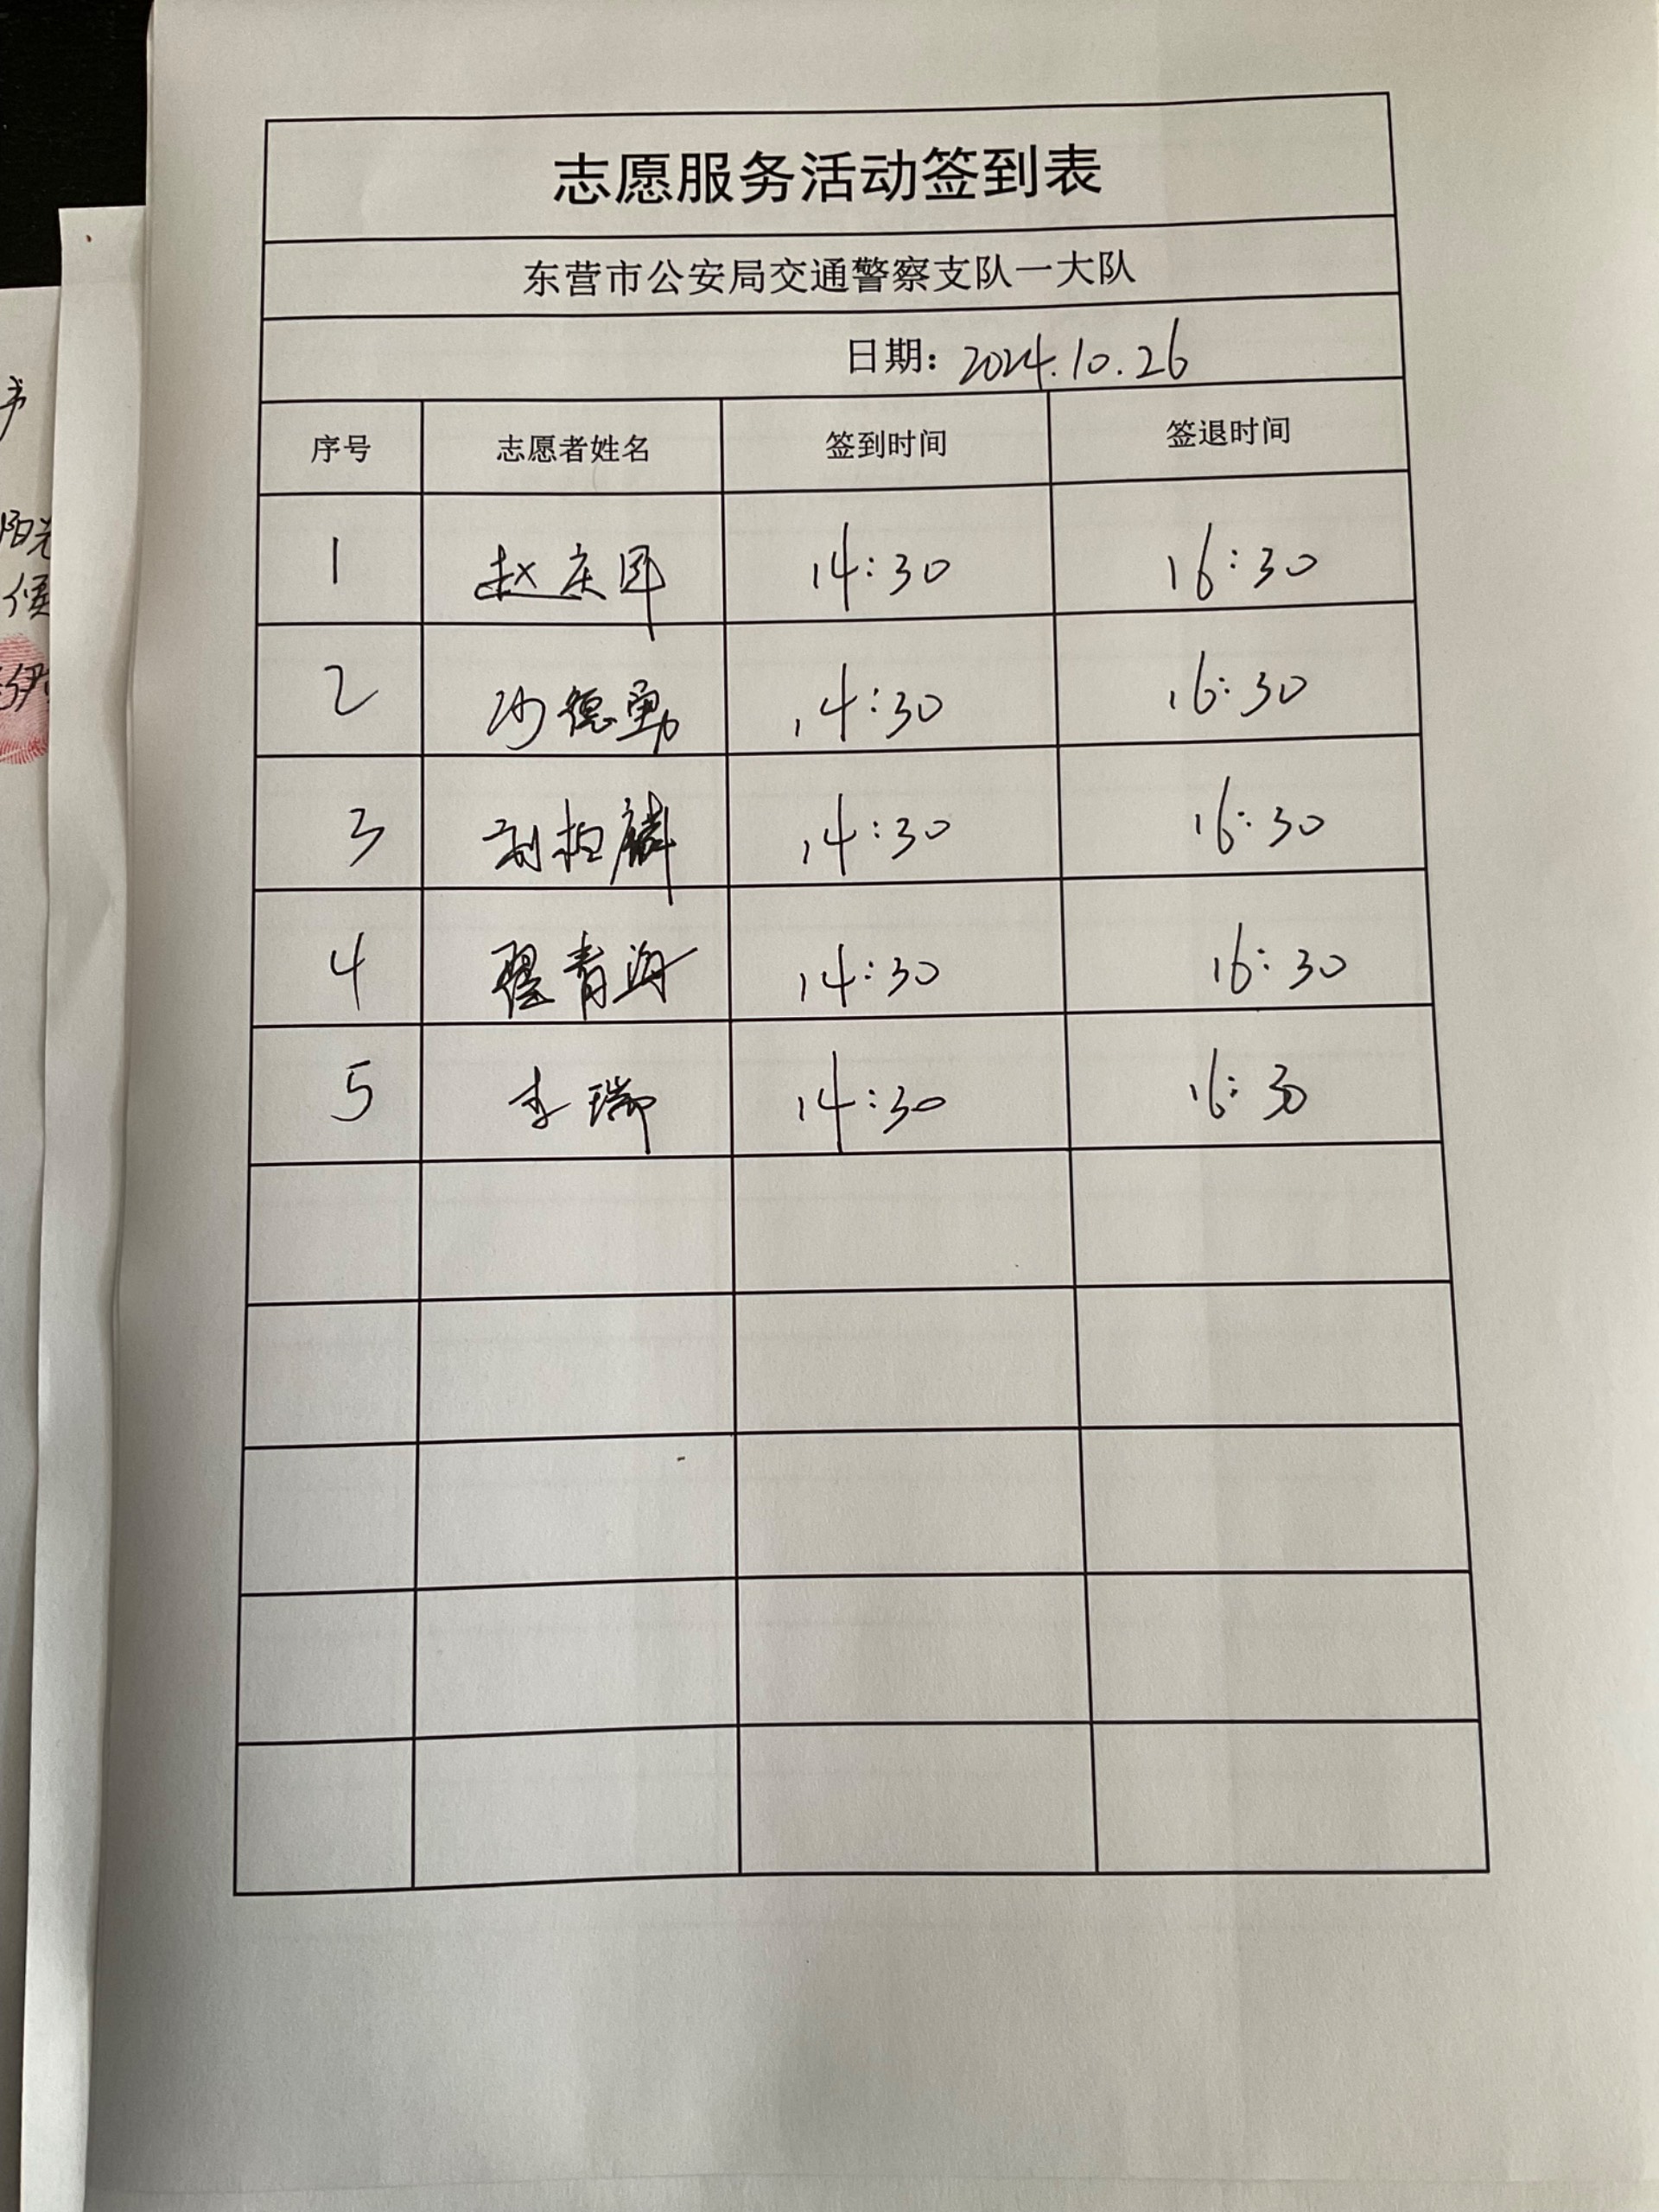 志愿服务活动签到表
东营市公安局交通警察支队一大队
日期：2024.10.26
序号 志愿者姓名 签到时间 签退时间
1 赵庆 14:30 16:30
2 沙德勇 14:30 16:30
3 刘柏麟 14:30 16:30
4 翟青海 14:30 16:30
5 李瑞 14:30 16:30
阳光